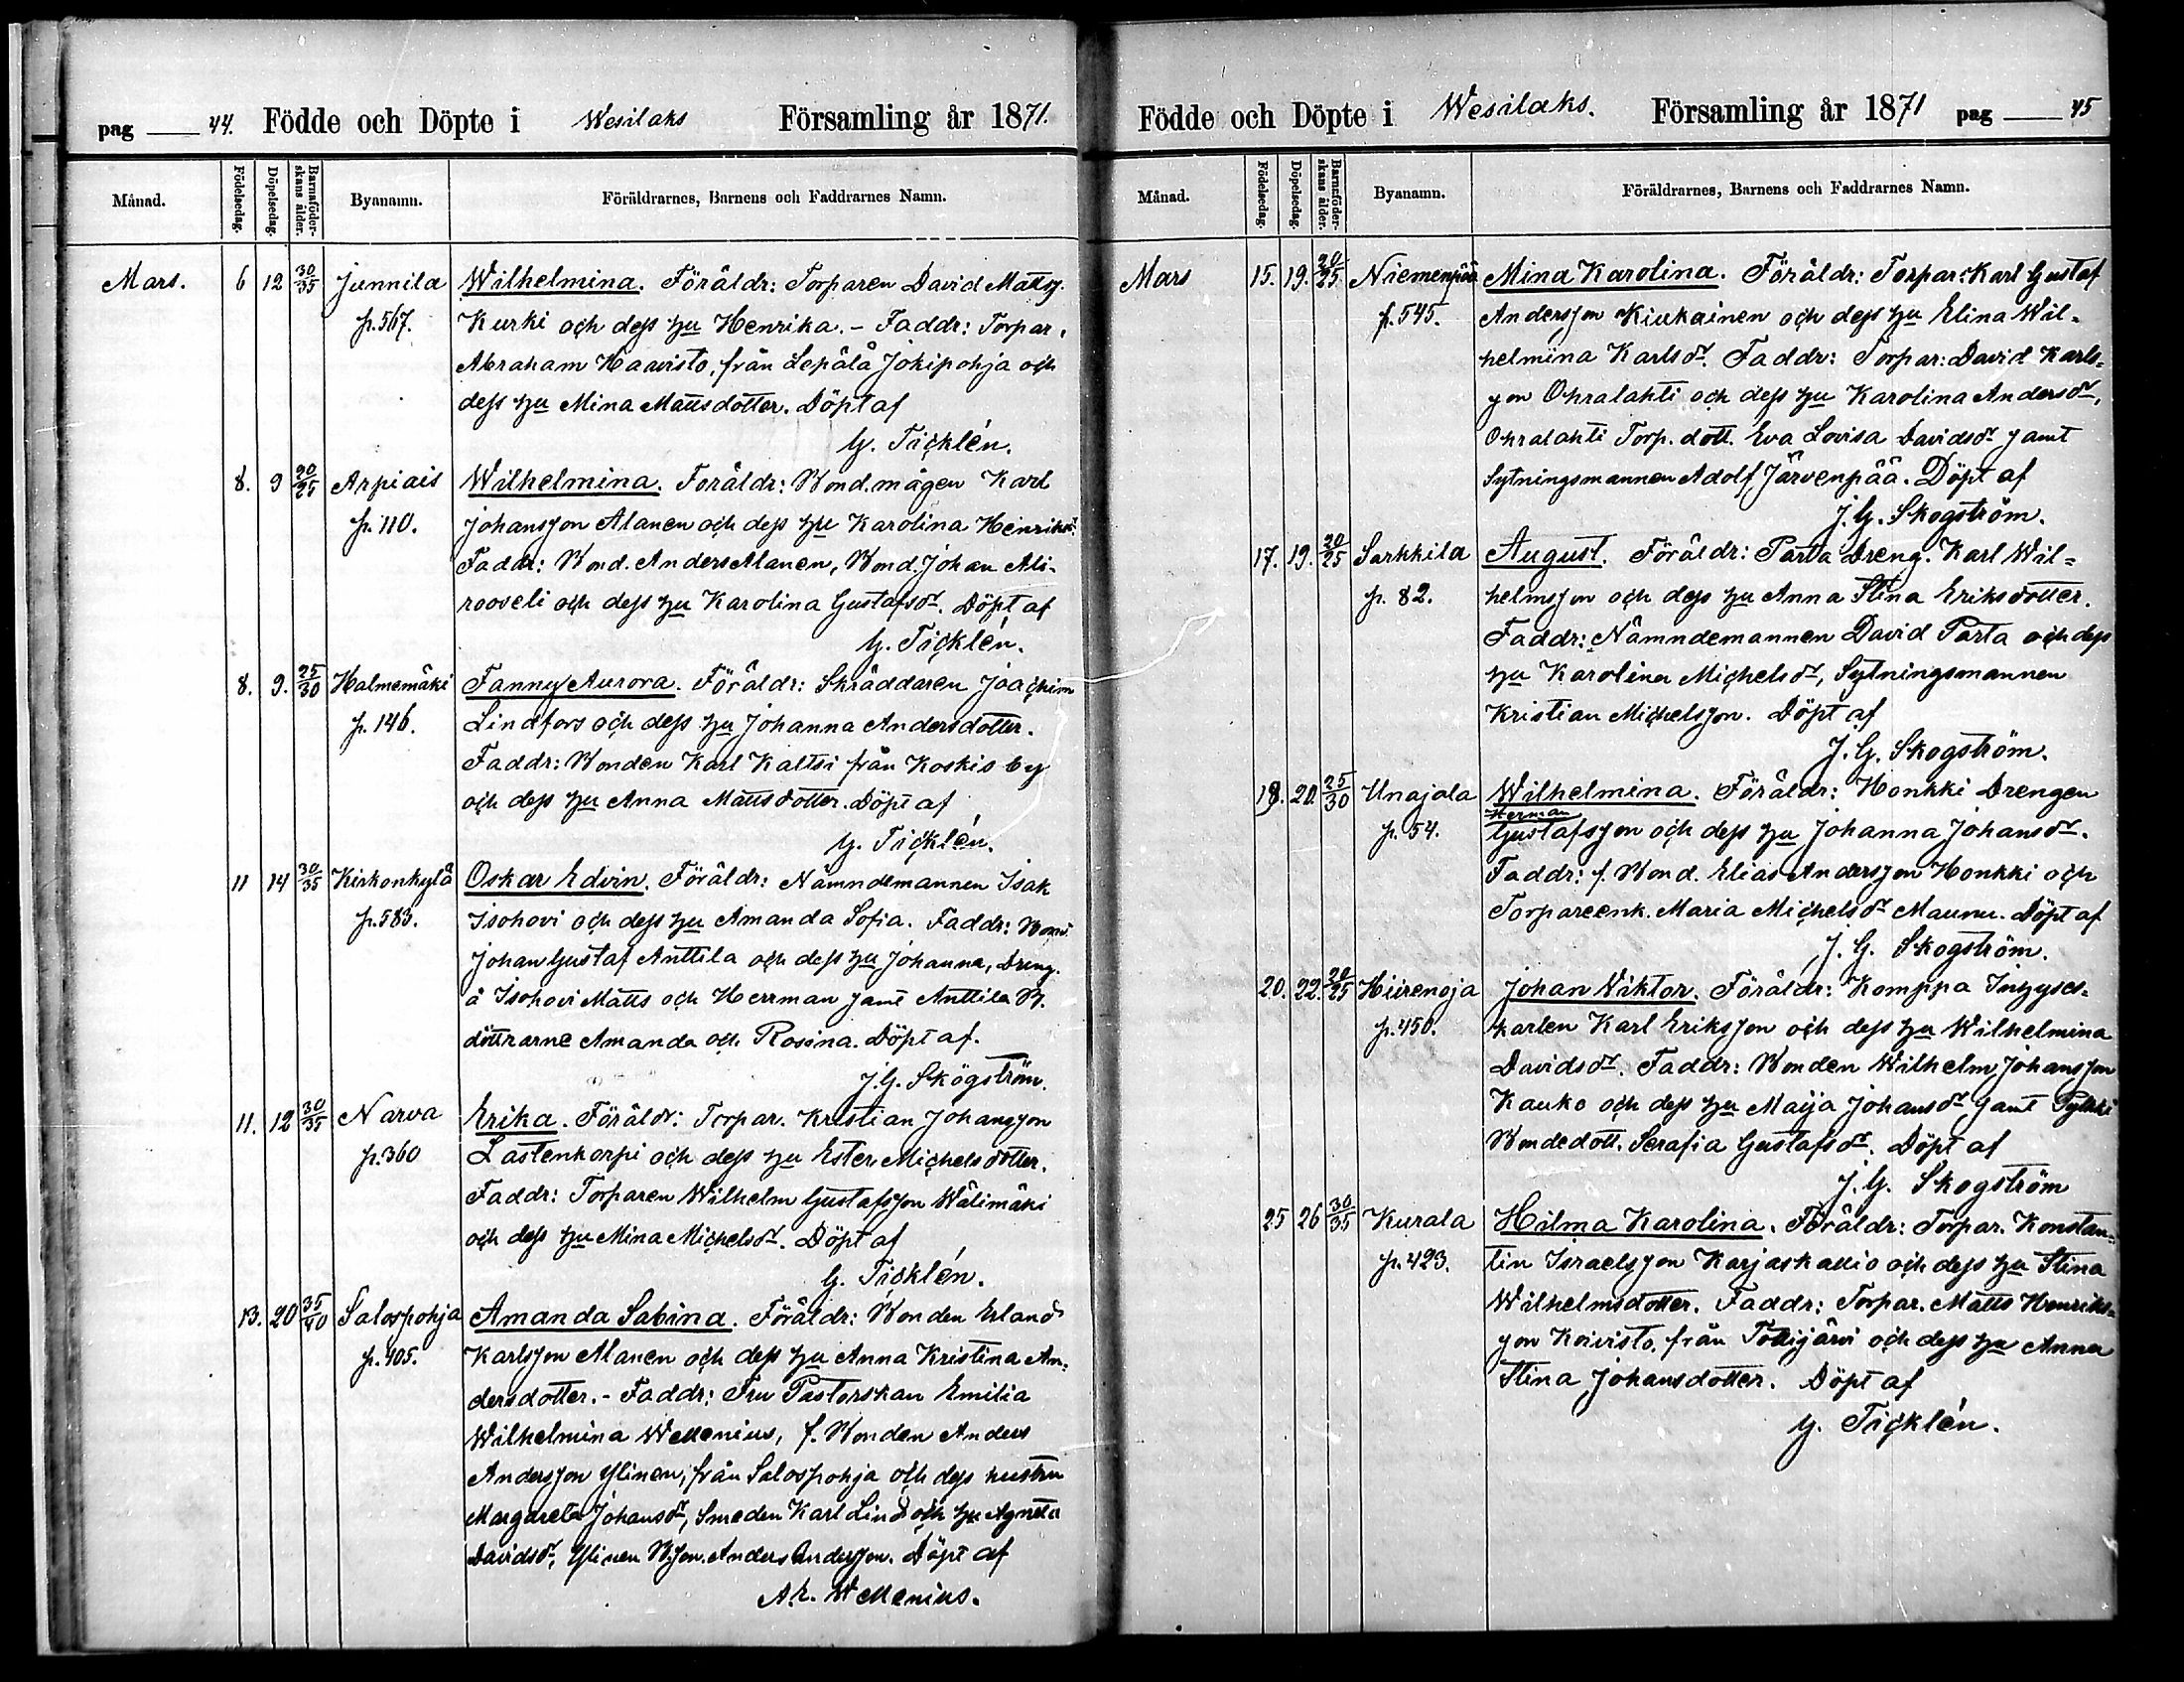 pag 44. Födde och Döpte i Wesilaks Församling år 1871.
Månad. Födelsedag. Döpelsedag. Barnaföderskans ålder. Byanamn. Föräldrarnes, Barnens och Faddrarnes Namn.
Mars. 6 12 30/35 Junnila Wilhelmina. Föräldr: Torparen David Mattsj.
p. 567. Kurki och dess hu Henrika. - Faddr: Torpar.
Abraham Haavisto, från Lepälä Jokipohja och
dess hu Mina Mattsdotter. Döpt af
G. Ticklén.
8. 9 20/25 Arpiais Wilhelmina. Föräldr: Bond.mågen Karl
p. 110. Johansson Alanen och dess hu Karolina Henriksdr
Faddr: Bond. Anders Alanen, Bond. Johan Ali-
rooseli och dess hu Karolina Gustafsdr. Döpt af
G. Ticklén.
8. 9. 25/30 Halmemäki Fanny Aurora. Föräldr: Skräddaren Joachim
p. 146. Lindfors och dess hu Johanna Andersdotter.
Faddr: Bonden Karl Kaltsi från Koskis by
och dess hu Anna Mattsdotter. Döpt af
G. Ticklén.
11 14 30/35 Kirkonkylä Oskar Edvin. Föräldr: Nämndemannen Isak
p. 583. Isohovi och dess hu Amanda Sofia. Faddr: Bond
Johan Gustaf Anttila och dess hu Johanna, Dreng.
å Isohovi Matts och Herrman samt Anttila B.
döttrarne Amanda och Rosina. Döpt af.
J. G. Skogström.
11. 12 30/35 Narva Erika. Föräldr: Torpar. Kristian Johansson
p. 360 Lastenkorpi och dess hu Ester Michelsdotter.
Faddr: Torparen Wilhelm Gustafsson Wälimäki
och dess hu Mina Michelsdr. Döpt af
G. Ticklén.
13. 20 35/40 Salospohja Amanda Sabina. Föräldr: Bonden Erland
p. 405. Karlsson Alanen och dess hu Anna Kristina An-
dersdotter. - Faddr: Fru Pastorskan Emilia
Wilhelmina Wellenius, f. Bonden Anders
Andersson Ylinen, från Salospohja och dess hustru
Margareta Johansdr, Smeden Karl Lind och hu Agneta
Davidsdr, Ylinen B.son. Anders Andersson. Döpt af
A. E. Wellenius.
Födde och Döpte i Wesilaks. Församling år 1871 pag 45
Månad. Födelsedag. Döpelsedag. Barnaföderskans ålder. Byanamn. Föräldrarnes, Barnens och Faddrarnes Namn.
Mars 15. 19. 20/25 Niemenpää Mina Karolina. Föräldr: Torpar: Karl Gustaf
p. 545. Andersson Kiukainen och dess hu Elina Wil-
helmina Karlsdr. Faddr: Torpar: David Karls-
son Ohralahti och dess hu Karolina Andersdr,
Ohralahti Torp. dott. Eva Lovisa Davidsdr samt
Sytningsmannen Adolf Järvenpää. Döpt af
J. G. Skogström.
17. 19. 20/25 Sarkkila August. Föräldr: Parta Dreng. Karl Wil-
p. 82. helmsson och dess hu Anna Stina Eriksdotter.
Faddr: Nämndemannen David Parta och dess
hu Karolina Michelsdr, Sytningsmannen
Kristian Michelsson. Döpt af
J. G. Skogström.
18. 20. 25/30 Unajala Wilhelmina. Föräldr: Honkki Drengen
Herman
p. 54. Gustafsson och dess hu Johanna Johansdr.
Faddr: f. Bond. Elias Andersson Honkki och
Torpareenk. Maria Michelsdr Maunu. Döpt af
J. G. Skogström.
20. 22. 20/25 Hiirenoja Johan Wiktor. Föräldr: Komppa Inhyses-
p. 450. karlen Karl Eriksson och dess hu Wilhelmina
Davidsdr. Faddr: Bonden Wilhelm Johansson
Kauko och dess hu Maija Johansdr samt
Bondedott. Serafia Gustafsdr. Döpt af
J. G. Skogström
25 26 30/35 Kurala Hilma Karolina. Föräldr: Torpar. Konstan-
p. 423. tin Israelsson Karjaskallio och dess hu Stina
Wilhelmsdotter. Faddr: Torpar. Matts Henriks-
son Koivisto, från Tottijärvi och dess hu Anna
Stina Johansdotter. Döpt af
G. Ticklén.